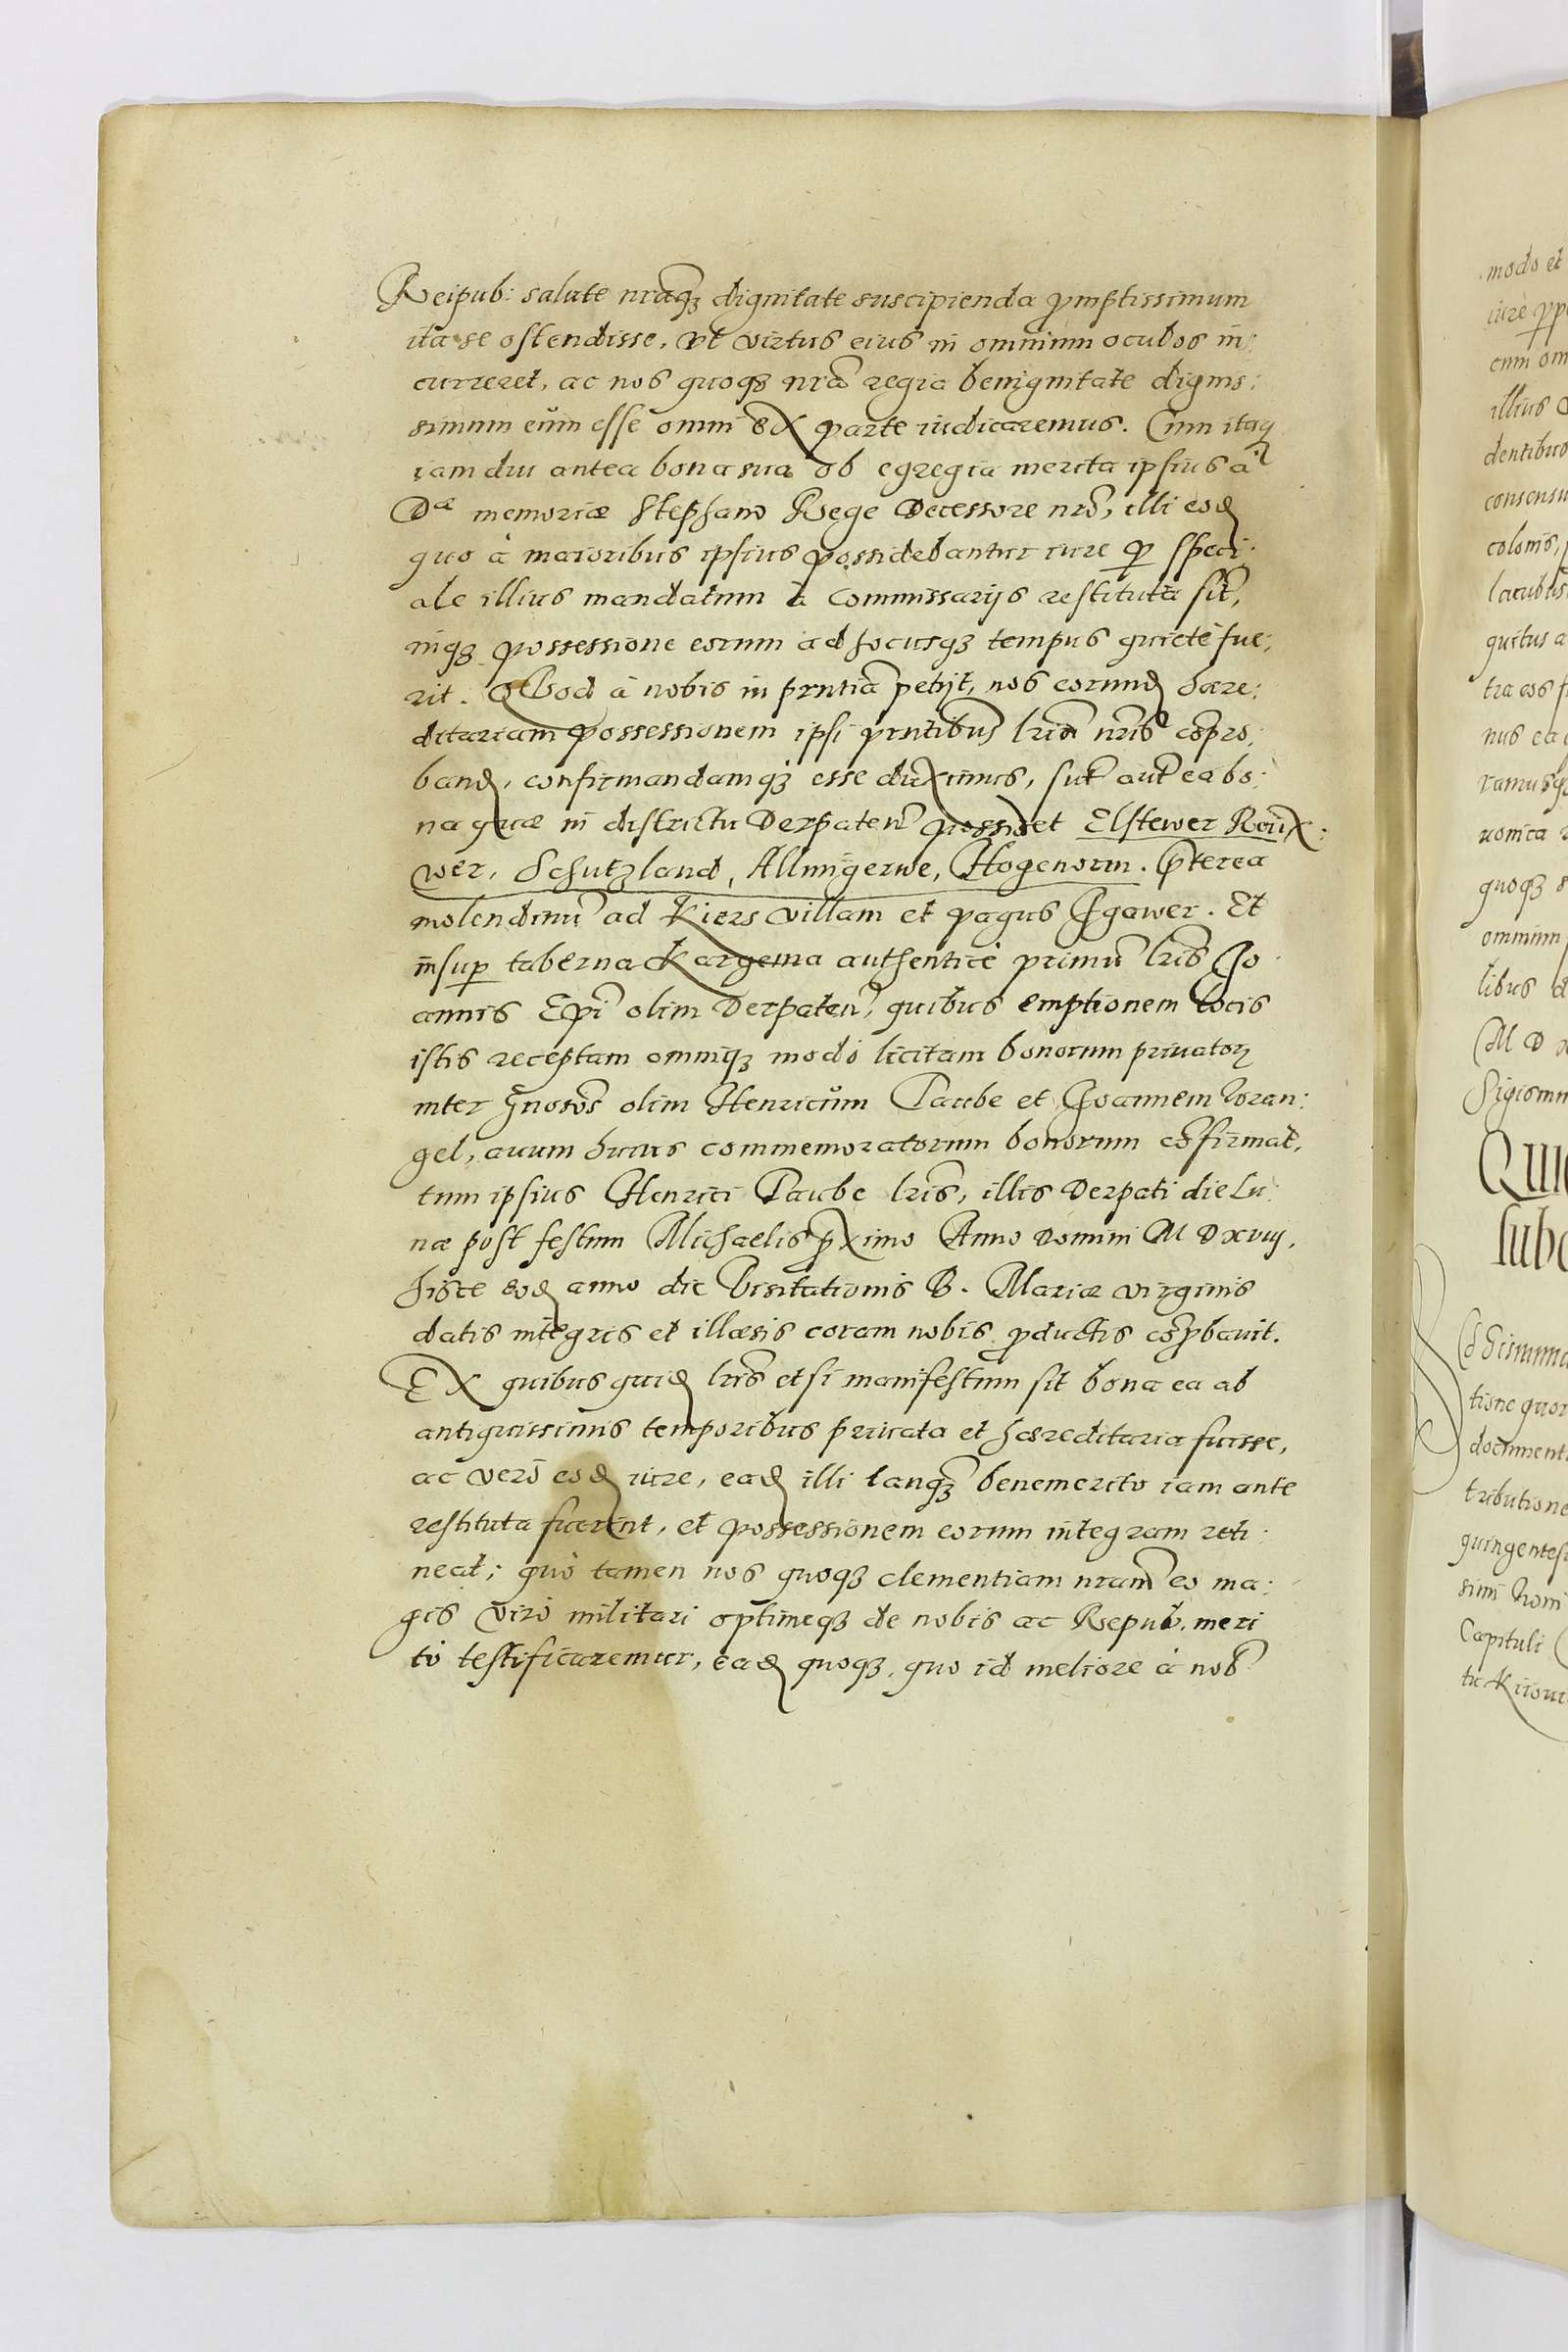 Reipub: salute nrãqꝫ dignitate suscipienda ꝓmptissimum
ita se ostendisse, vt virtus eius in omnium oculos in:
curreret, ac nos quoqꝫ nrã regia benignitate dignis:
simum eum esse omni ex parte iudicaremus. Cum itaqꝫ
iam diu antea bona sua ob egregia merita ipsius à
Dae memoriæ Stephano Rege Decessore nrõ, illi eod
quo à maioribus ipsius possidebantur iure ꝑ speci:
ale illius mandatum à Commissarijs restituta sĩt,
inqꝫ possessione eorum ad hocusqꝫ tempus quietè fue:
rit. Quod à nobis in prntiã petijt, nos eorund hære:
ditariam possessionem ipsi prntibus lrĩs nrĩs cõpro:
band, confirmandamqꝫ esse duximus, sũt aũt ea bo:
na quæ in districtu Derpateñ possidet Elstewer Roux:
wer, Schutzland, Allmigerwe, Hogenorm. P̃terea
molendinũ ad Kiers villam et pagus Igawer. Et
insuꝑ taberna Kargema authenticè primũ lrĩs Jo:
annis Ep̃i olim Derpateñ, quibus emptionem locis
istis receptam omniqꝫ modo licitam bonorum priuatoꝝ
inter g̃nosos olim Henricum Taube et Joannem Vran:
gel, auum huius commemoratorum bonorum cõfirmat,
tum ipsius Henrici Taube lrĩs, illis Derpati die Lu:
næ post festum Michaelis ꝓximo Anno Domini M D xviij,
hisce eod anno die Visitationis B. Mariæ virginis
datis integris et illæsis coram nobis ꝓductis cõꝓbauit.
Ex quibus quid lrĩs etsi manifestum sit bona ea ab
antiquissimis temporibus priuata et hæreditaria fuisse,
ac verò eod iure, ead illi tanqꝫ benemerito iam ante
restituta fuerint, et possessionem eorum integram reti:
neat; quò tamen nos quoqꝫ clementiam nram̃ eo ma:
gis viro militari optimeqꝫ de nobis ac Repub. meri
to testificaremur, ead quoqꝫ, quo id meliore à nob̃
modo et
iure ꝑp
cum om
illius
dentibus
consensu
colonis,
lacubus
quitus a
tra eos f
nus ea
ramusqꝫ
uonica
quoqꝫ
omnium
libus
M D
Sigismu
QUI
subs
Sigismu
tione quor
document
tributione
quingentesi
simi Noni
Capituli
tu Kiioui